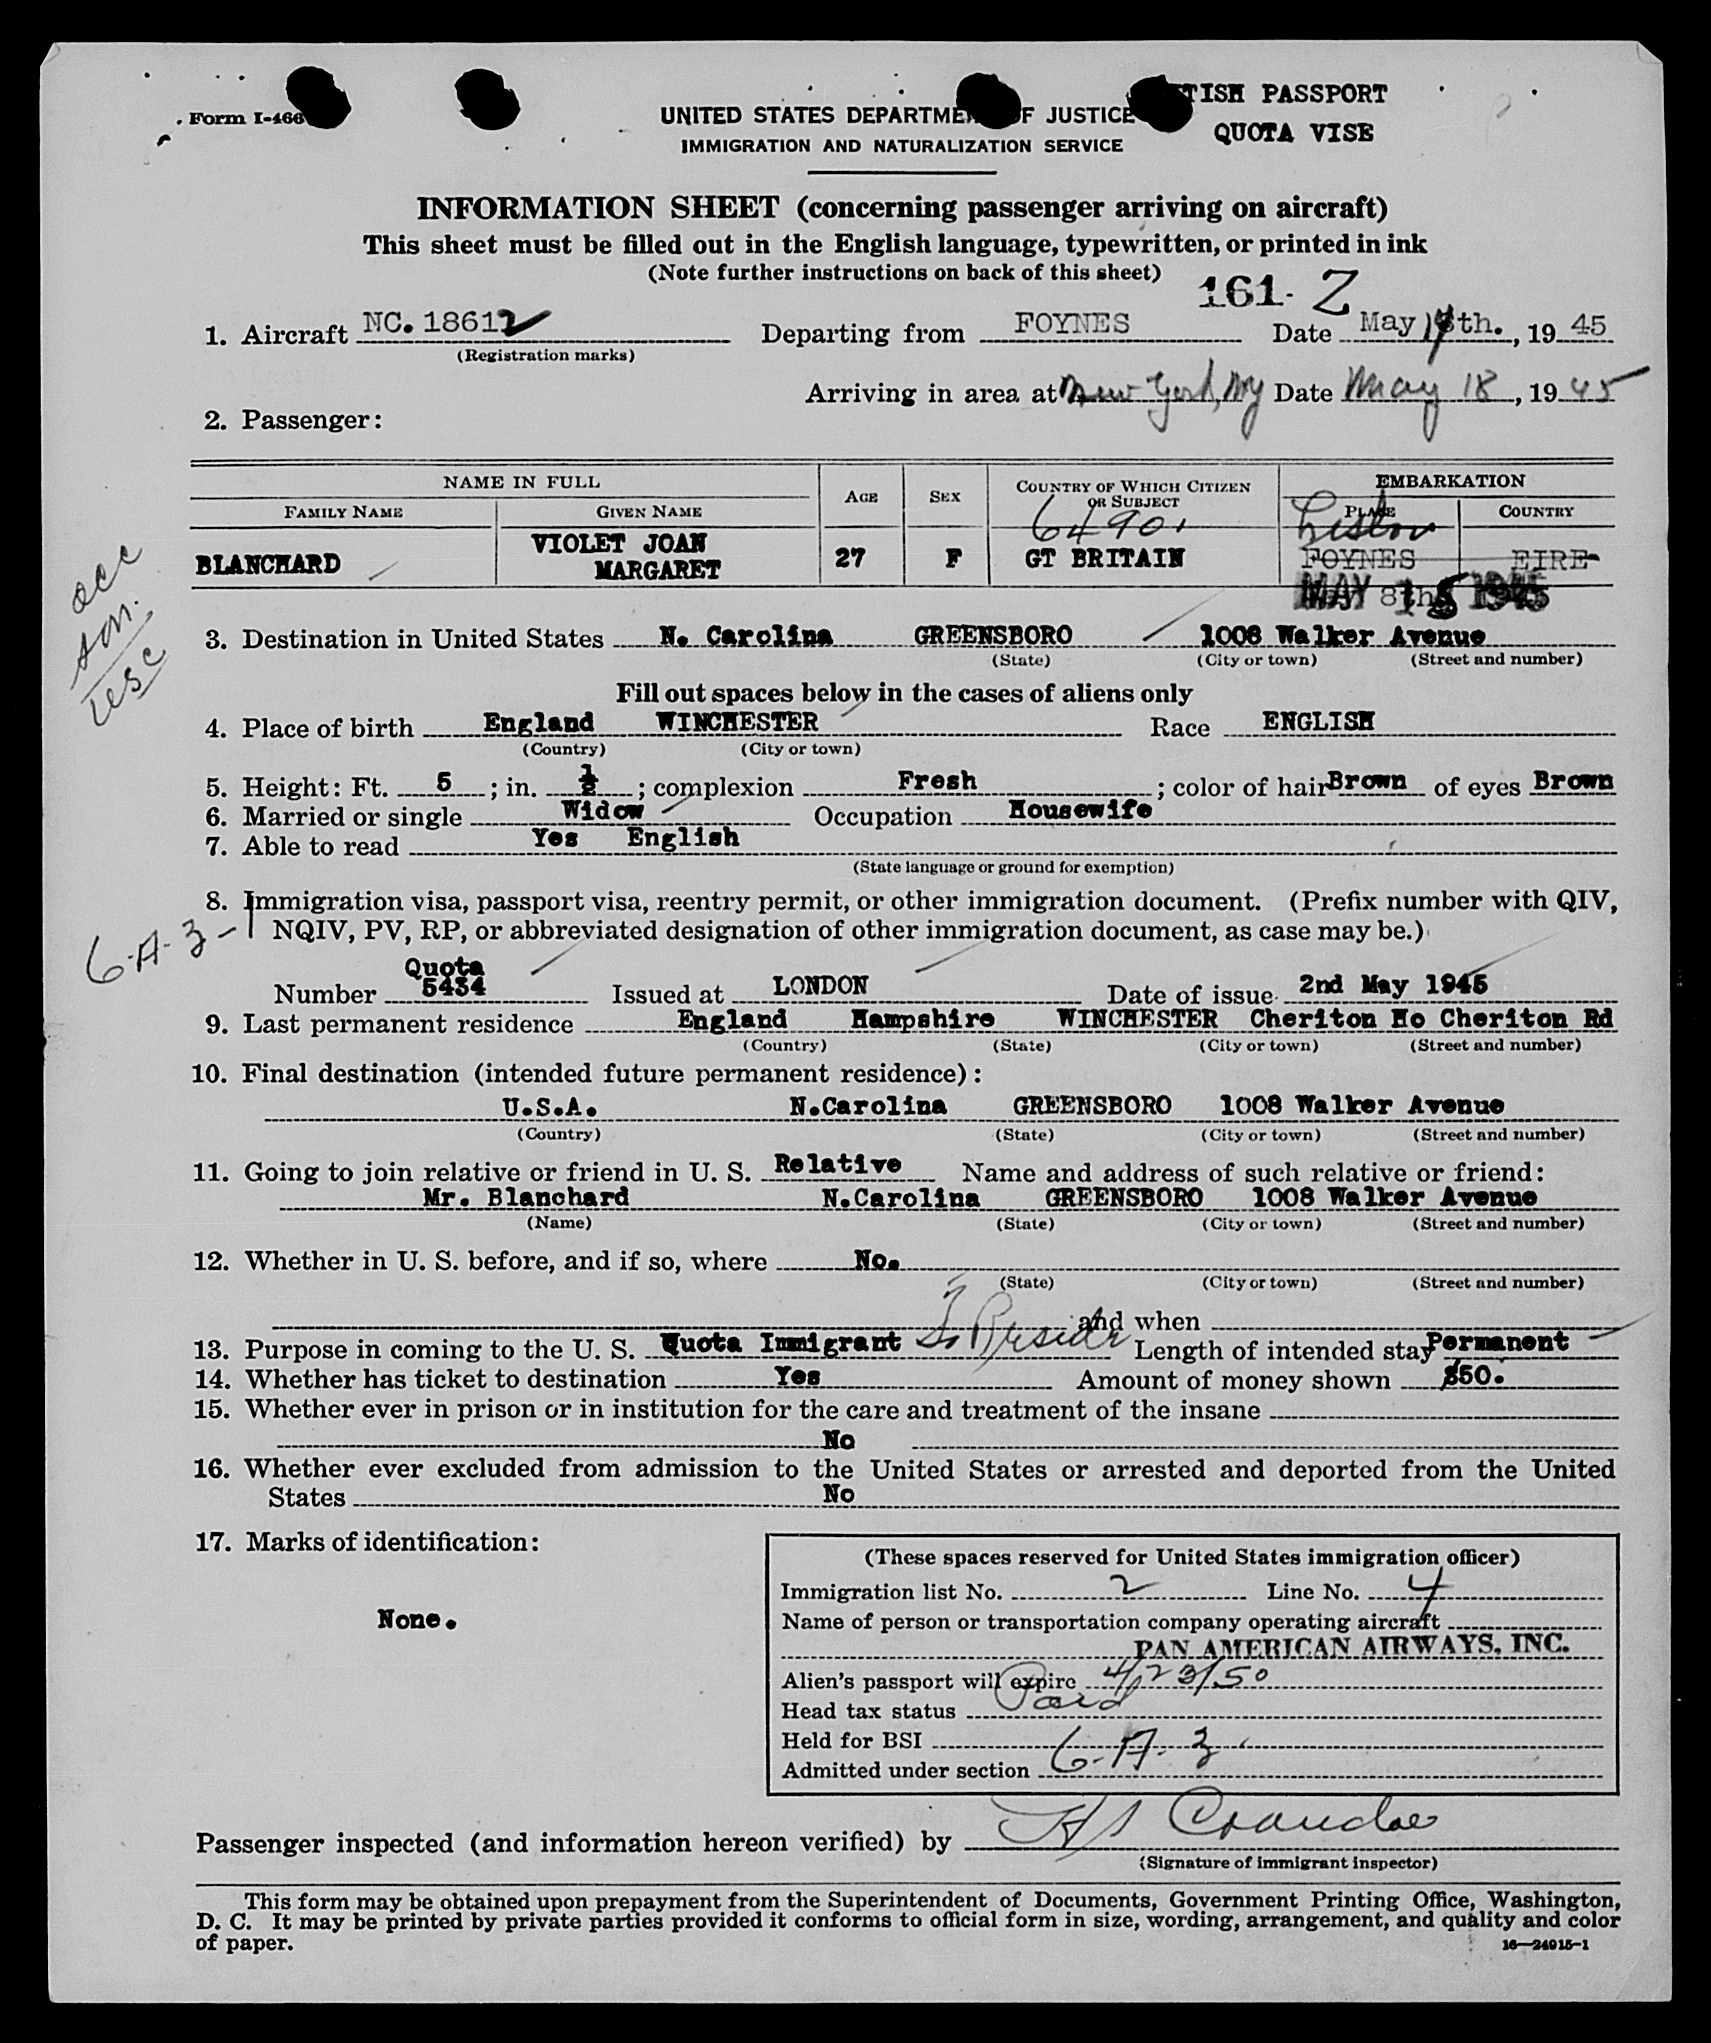 Form I-466
UNITED STATES DEPARTMENT OF JUSTICE
IMMIGRATION AND NATURALIZATION SERVICE
TISH PASSPORT
QUOTA VISE
INFORMATION SHEET (concerning passenger arriving on aircraft)
This sheet must be filled out in the English language, typewritten, or printed in ink
(Note further instructions on back of this sheet)
161- Z
1. Aircraft NC. 18612 Departing from FOYNES Date May 17th., 19 45
(Registration marks)
Arriving in area at New York, NY Date May 18, 19 45
2. Passenger:
NAME IN FULL AGE SEX COUNTRY OF WHICH CITIZEN OR SUBJECT EMBARKATION
FAMILY NAME GIVEN NAME PLACE COUNTRY
6490 Lisbon
BLANCHARD VIOLET JOAN MARGARET 27 F GT BRITAIN FOYNES EIRE
MAY 1945
acc
son.
usc
3. Destination in United States N. Carolina GREENSBORO 1008 Walker Avenue
(State) (City or town) (Street and number)
Fill out spaces below in the cases of aliens only
4. Place of birth England WINCHESTER Race ENGLISH
(Country) (City or town)
5. Height: Ft. 5 ; in. ½ ; complexion Fresh ; color of hair Brown of eyes Brown
6. Married or single Widow Occupation Housewife
7. Able to read Yes English
(State language or ground for exemption)
8. Immigration visa, passport visa, reentry permit, or other immigration document. (Prefix number with QIV,
6-A-3- NQIV, PV, RP, or abbreviated designation of other immigration document, as case may be.)
Quota
Number 5434 Issued at LONDON Date of issue 2nd May 1945
9. Last permanent residence England Hampshire WINCHESTER Cheriton Ho Cheriton Rd
(Country) (State) (City or town) (Street and number)
10. Final destination (intended future permanent residence):
U.S.A. N.Carolina GREENSBORO 1008 Walker Avenue
(Country) (State) (City or town) (Street and number)
11. Going to join relative or friend in U. S. Relative Name and address of such relative or friend:
Mr. Blanchard N.Carolina GREENSBORO 1008 Walker Avenue
(Name) (State) (City or town) (Street and number)
12. Whether in U. S. before, and if so, where No.
(State) (City or town) (Street and number)
and when
13. Purpose in coming to the U. S. Quota Immigrant To Reside Length of intended stay Permanent
14. Whether has ticket to destination Yes Amount of money shown $50.
15. Whether ever in prison or in institution for the care and treatment of the insane
No
16. Whether ever excluded from admission to the United States or arrested and deported from the United
States No
17. Marks of identification:
None.
(These spaces reserved for United States immigration officer)
Immigration list No. 2 Line No. 4
Name of person or transportation company operating aircraft
PAN AMERICAN AIRWAYS, INC.
Alien's passport will expire 4/23/50
Head tax status Paid
Held for BSI
Admitted under section 6-A-3
Passenger inspected (and information hereon verified) by
(Signature of immigrant inspector)
This form may be obtained upon prepayment from the Superintendent of Documents, Government Printing Office, Washington,
D. C. It may be printed by private parties provided it conforms to official form in size, wording, arrangement, and quality and color
of paper.
16—24915-1